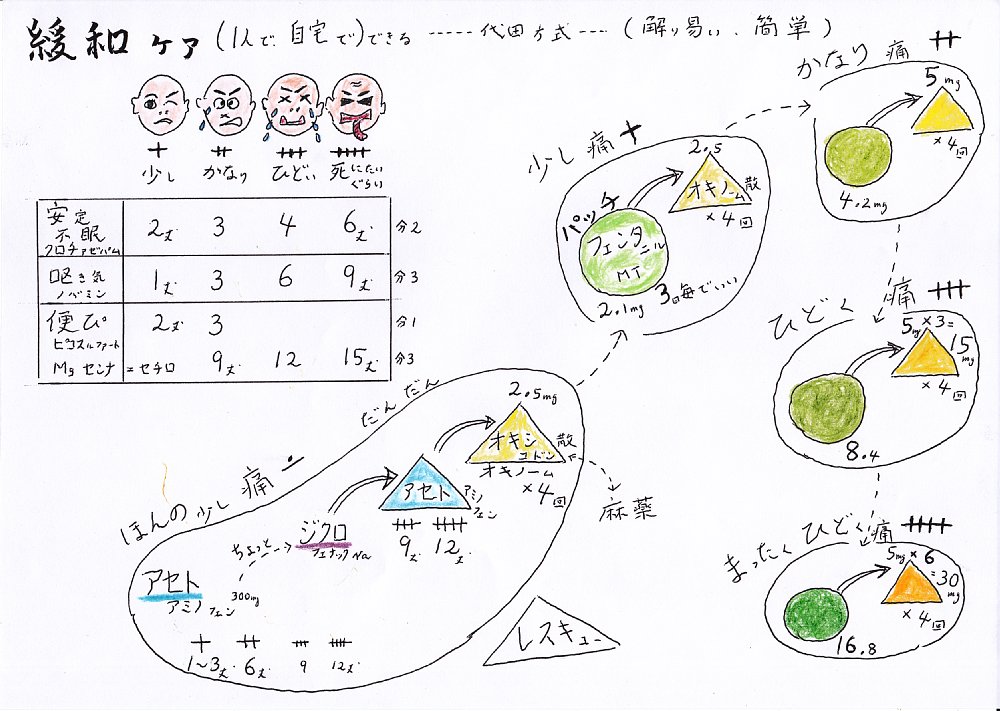 緩和ケア (1人で、自宅で)できる ----- 代田方式 ---- (解り易い、簡単)
+ ++ +++ ++++
少し かなり ひどい 死にたいぐらい
安定 不眠 クロチアゼパム 2丈 3 4 6丈 分2
呕き気 ノバミン 1丈 3 6 9丈 分3
便ぴ ピコスルファート 2丈 3 分1
Mgセンナ =セチロ 9丈 12 15丈 分3
ほんの少し痛
だんだん
アセト
アミノフェン
300mg
+ ++ +++ ++++
1~3丈 6丈 9 12丈
ちょっと
ジクロ
フェナックNa
アセト
アミノフェン
9丈 12丈
2.5mg
オキシ
コドン
散
オキノーム
×4回
麻薬
レスキュー
少し痛 +
パッチ
フェンタニル
MT
2.1mg
3日毎でいい
2.5
オキノーム
散
×4回
かなり痛 ++
5mg
×4回
4.2mg
ひどく痛 +++
5mg×3=
15mg
×4回
8.4
まったくひどく痛 ++++
5mg×6
=30mg
×4回
16.8